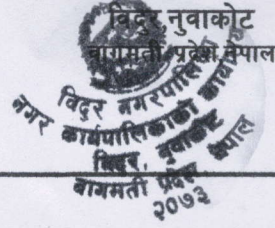 विदुर नुवाकोट
बागमती प्रदेश नेपाल
विदुर नगरपालिका
नगर कार्यपालिकाको कार्यालय
विदुर, नुवाकोट
बागमती प्रदेश, नेपाल
२०७३